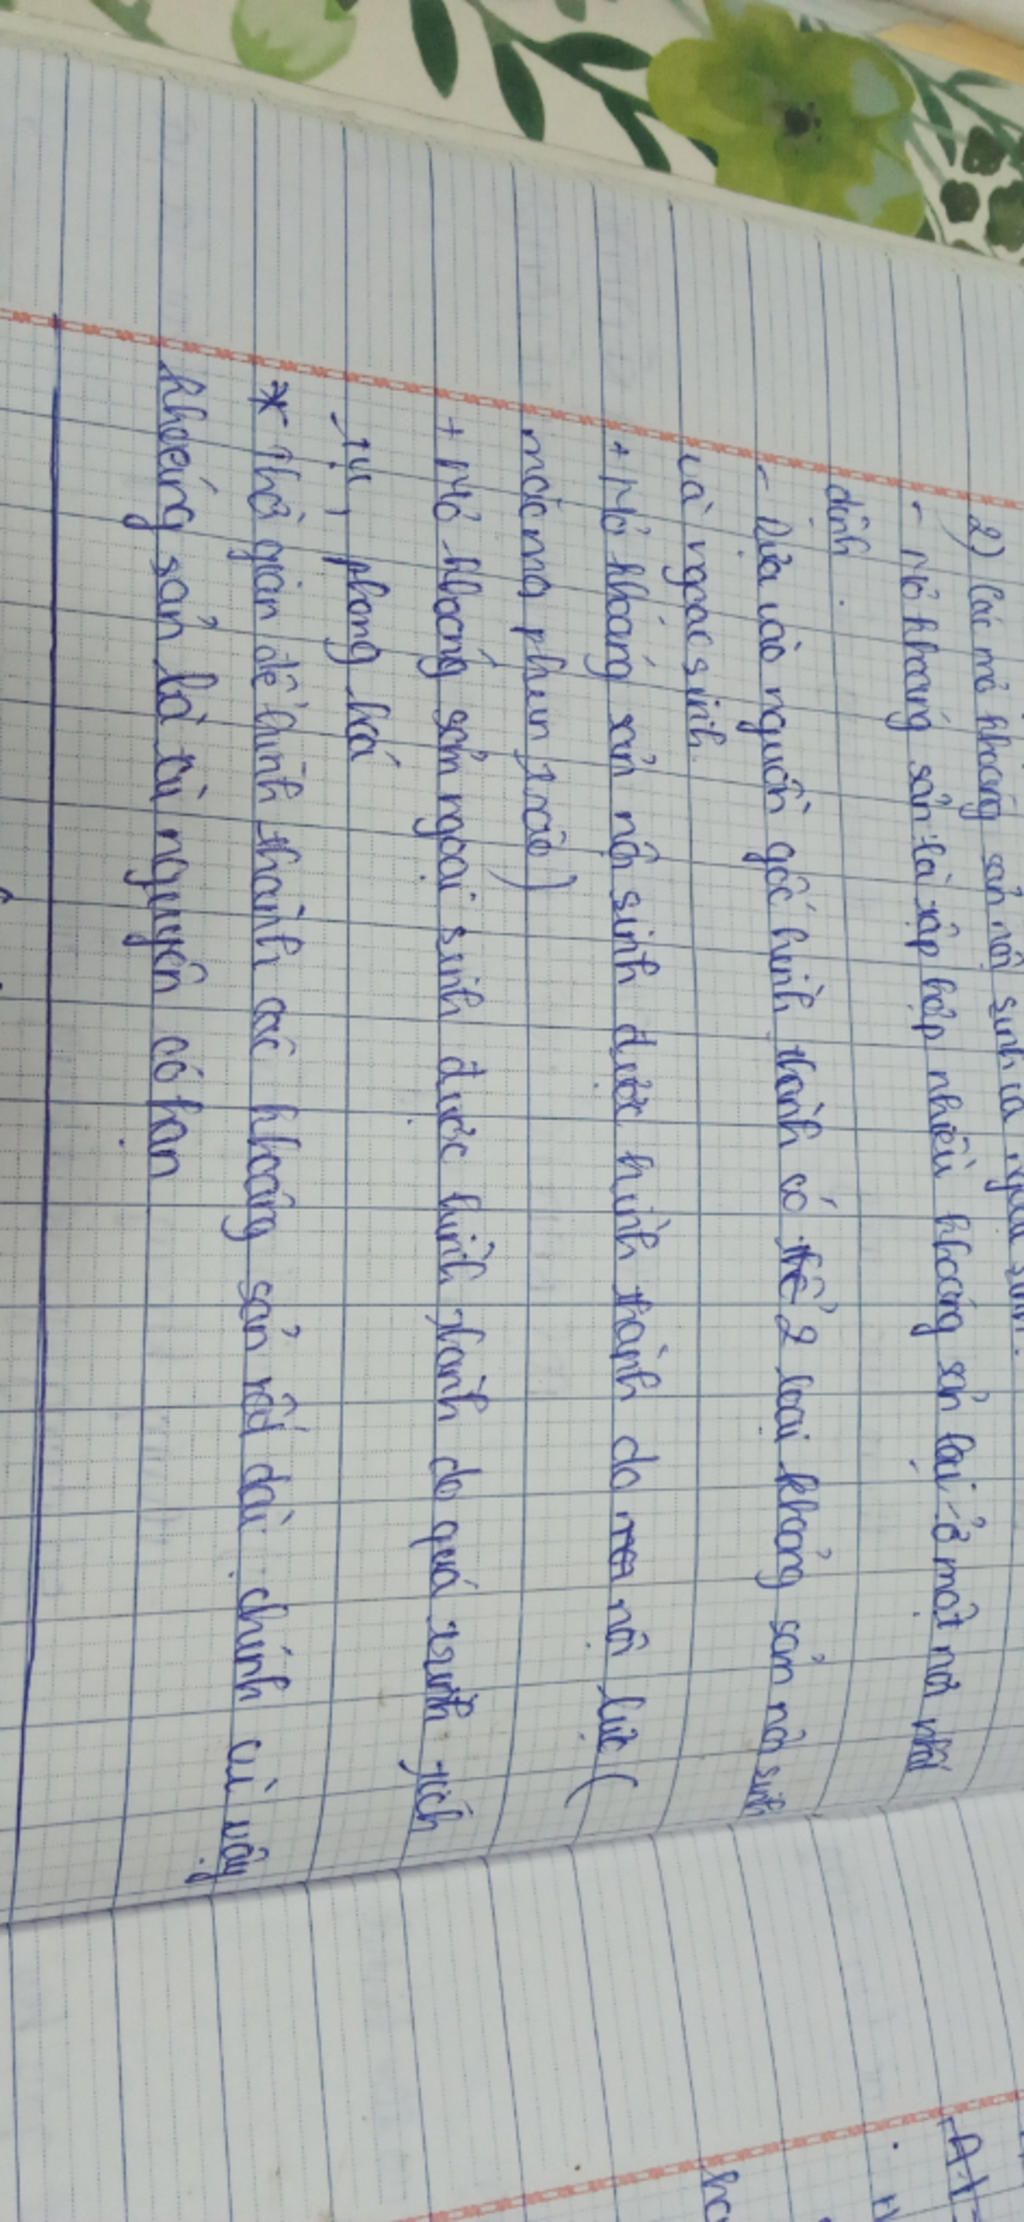 2) Các mỏ khoáng sản nội sinh và ngoại sinh.
- Mỏ khoáng sản: là tập hợp nhiều khoáng sản lại ở một nơi nhất
định.
- Dựa vào nguồn gốc hình thành có thể 2 loại khoáng sản nội sinh
và ngoại sinh.
+ Mỏ khoáng sản nội sinh được hình thành do nội lực (
macma phun trào)
+ Mỏ khoáng sản ngoại sinh được hình thành do quá trình tích
tụ, phong hoá
* Thời gian để hình thành các khoáng sản rất dài chính vì vậy
khoáng sản là tài nguyên có hạn